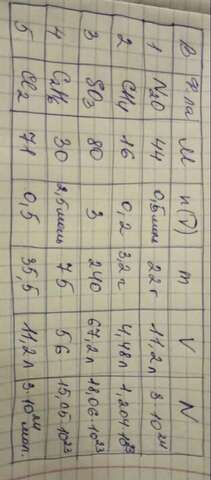 В Ф-ла M n(ν) m V N
1 N2O 44 0,5 моль 22 г 11,2 л 3·10²⁴
2 CH4 16 0,2 3,2 г 4,48 л 1,204·10²³
3 SO3 80 3 240 67,2 л 18,06·10²³
4 C2H6 30 2,5 моль 75 56 15,05·10²³
5 Cl2 71 0,5 35,5 11,2 л 3·10²⁴ мол.